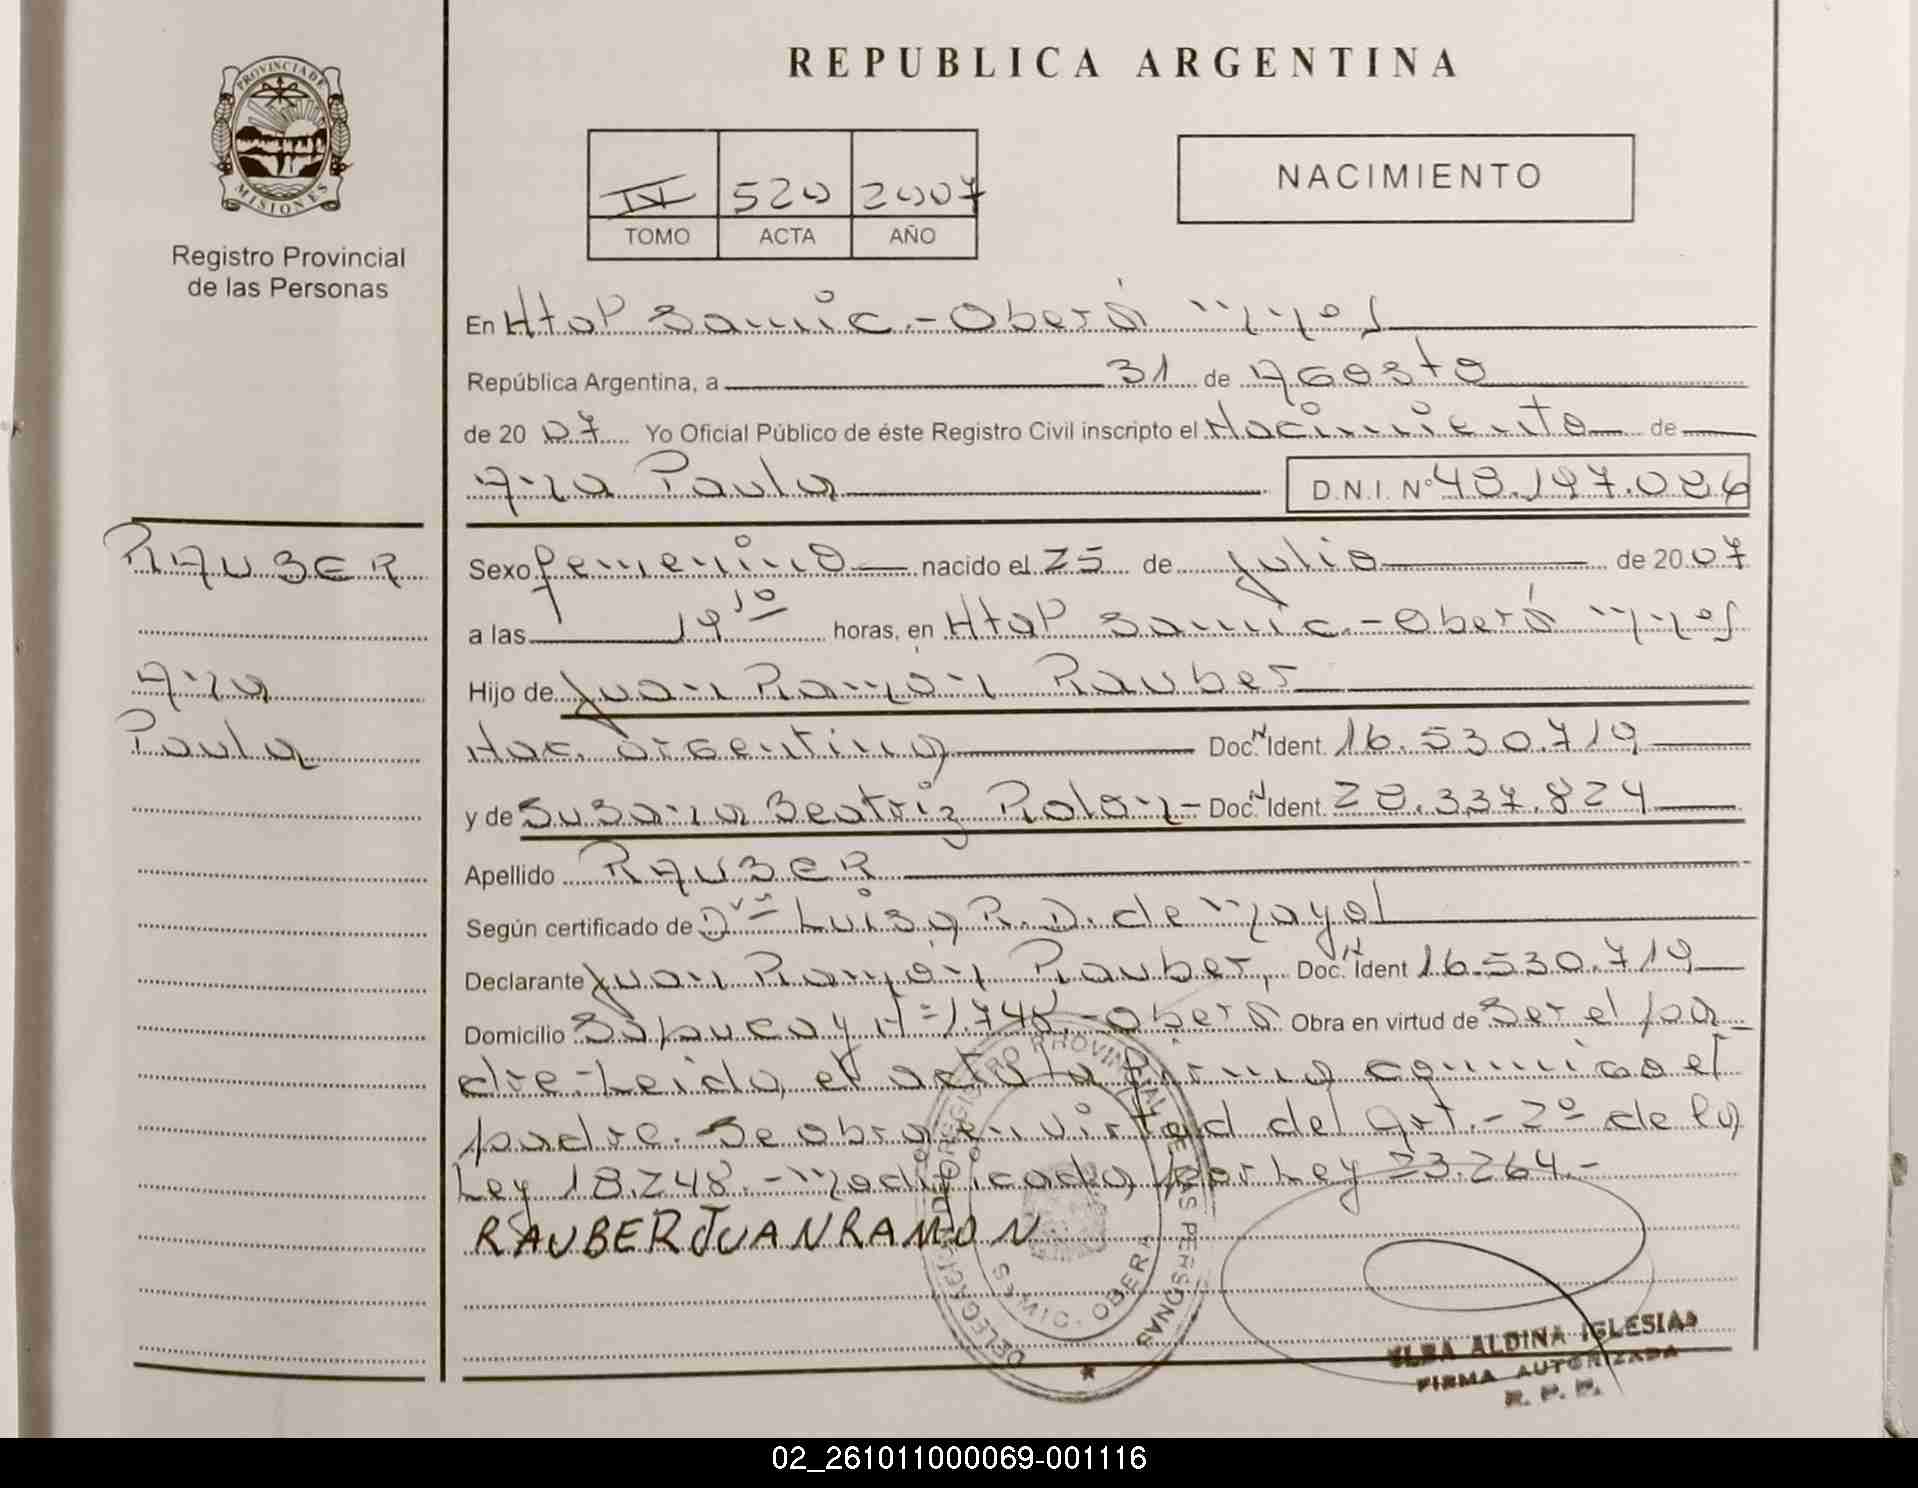 PROVINCIA DE
MISIONES
Registro Provincial
de las Personas
REPUBLICA ARGENTINA
IV 520 2007
TOMO ACTA AÑO
NACIMIENTO
En Htal Samic.-Oberá Mnes
República Argentina, a 31 de Agosto
de 20 07 Yo Oficial Público de éste Registro Civil inscripto el Nacimiento de
Ana Paula D.N.I. Nº 48.197.086
RAUBER
Ana
Paula
Sexo femenino nacido el 25 de julio de 20 07
a las 19 10 horas, en Htal Samic.-Oberá Mnes
Hijo de Juan Ramón Rauber
Nac. argentina Doc. N Ident. 16.530.719
y de Susana Beatriz Rolon- Doc. N Ident. 28.337.824
Apellido RAUBER
Según certificado de Dra Luisa R.D. de Mayol
Declarante Juan Ramón Rauber, Doc. N Ident 16.530.719
Domicilio Sapucay Nº 1.748.-Oberá Obra en virtud de ser el pa-
dre-Leida el acta la firma conmigo el
padre. Se obra en virtud del art.-2º de la
Ley 18.248.-Modificada por Ley 23.264.-
RAUBER JUAN RAMON
DELEGACION REGISTRO PROVINCIAL DE LAS PERSONAS
SAMIC. OBERA
ELBA ALDINA IGLESIAS
FIRMA AUTORIZADA
R. P. P.
02_261011000069-001116